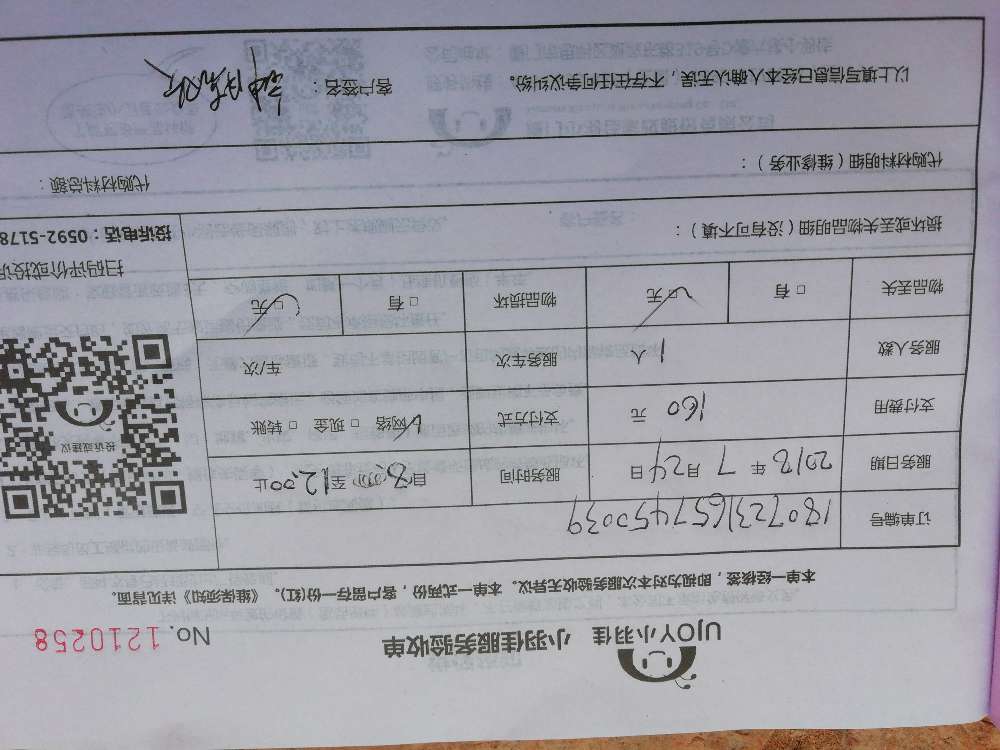 UJOY小羽佳 小羽佳服务验收单 No. 1210258
本单一经接签，即视为对本次服务验收无异议。本单一式两份，客户留存一份(红)。《维保须知》详见背面。
订单编号 1807231657450039
服务日期 2018年7月24日 服务时间 自8:00至12:00止
支付费用 160元 支付方式 ☑网络 □现金 □转账
服务人数 1人 服务车次 车/次
物品丢失 □有 ☑无 物品损坏 □有 ☑无
投诉或建议
扫码评价或投诉
投诉电话：0592-5178
损坏或丢失物品明细（没有可不填）：
代购材料明细（维修业务）： 代购材料总额：
以上填写信息已经本人确认无误，不存在任何争议纠纷。 客户签名：